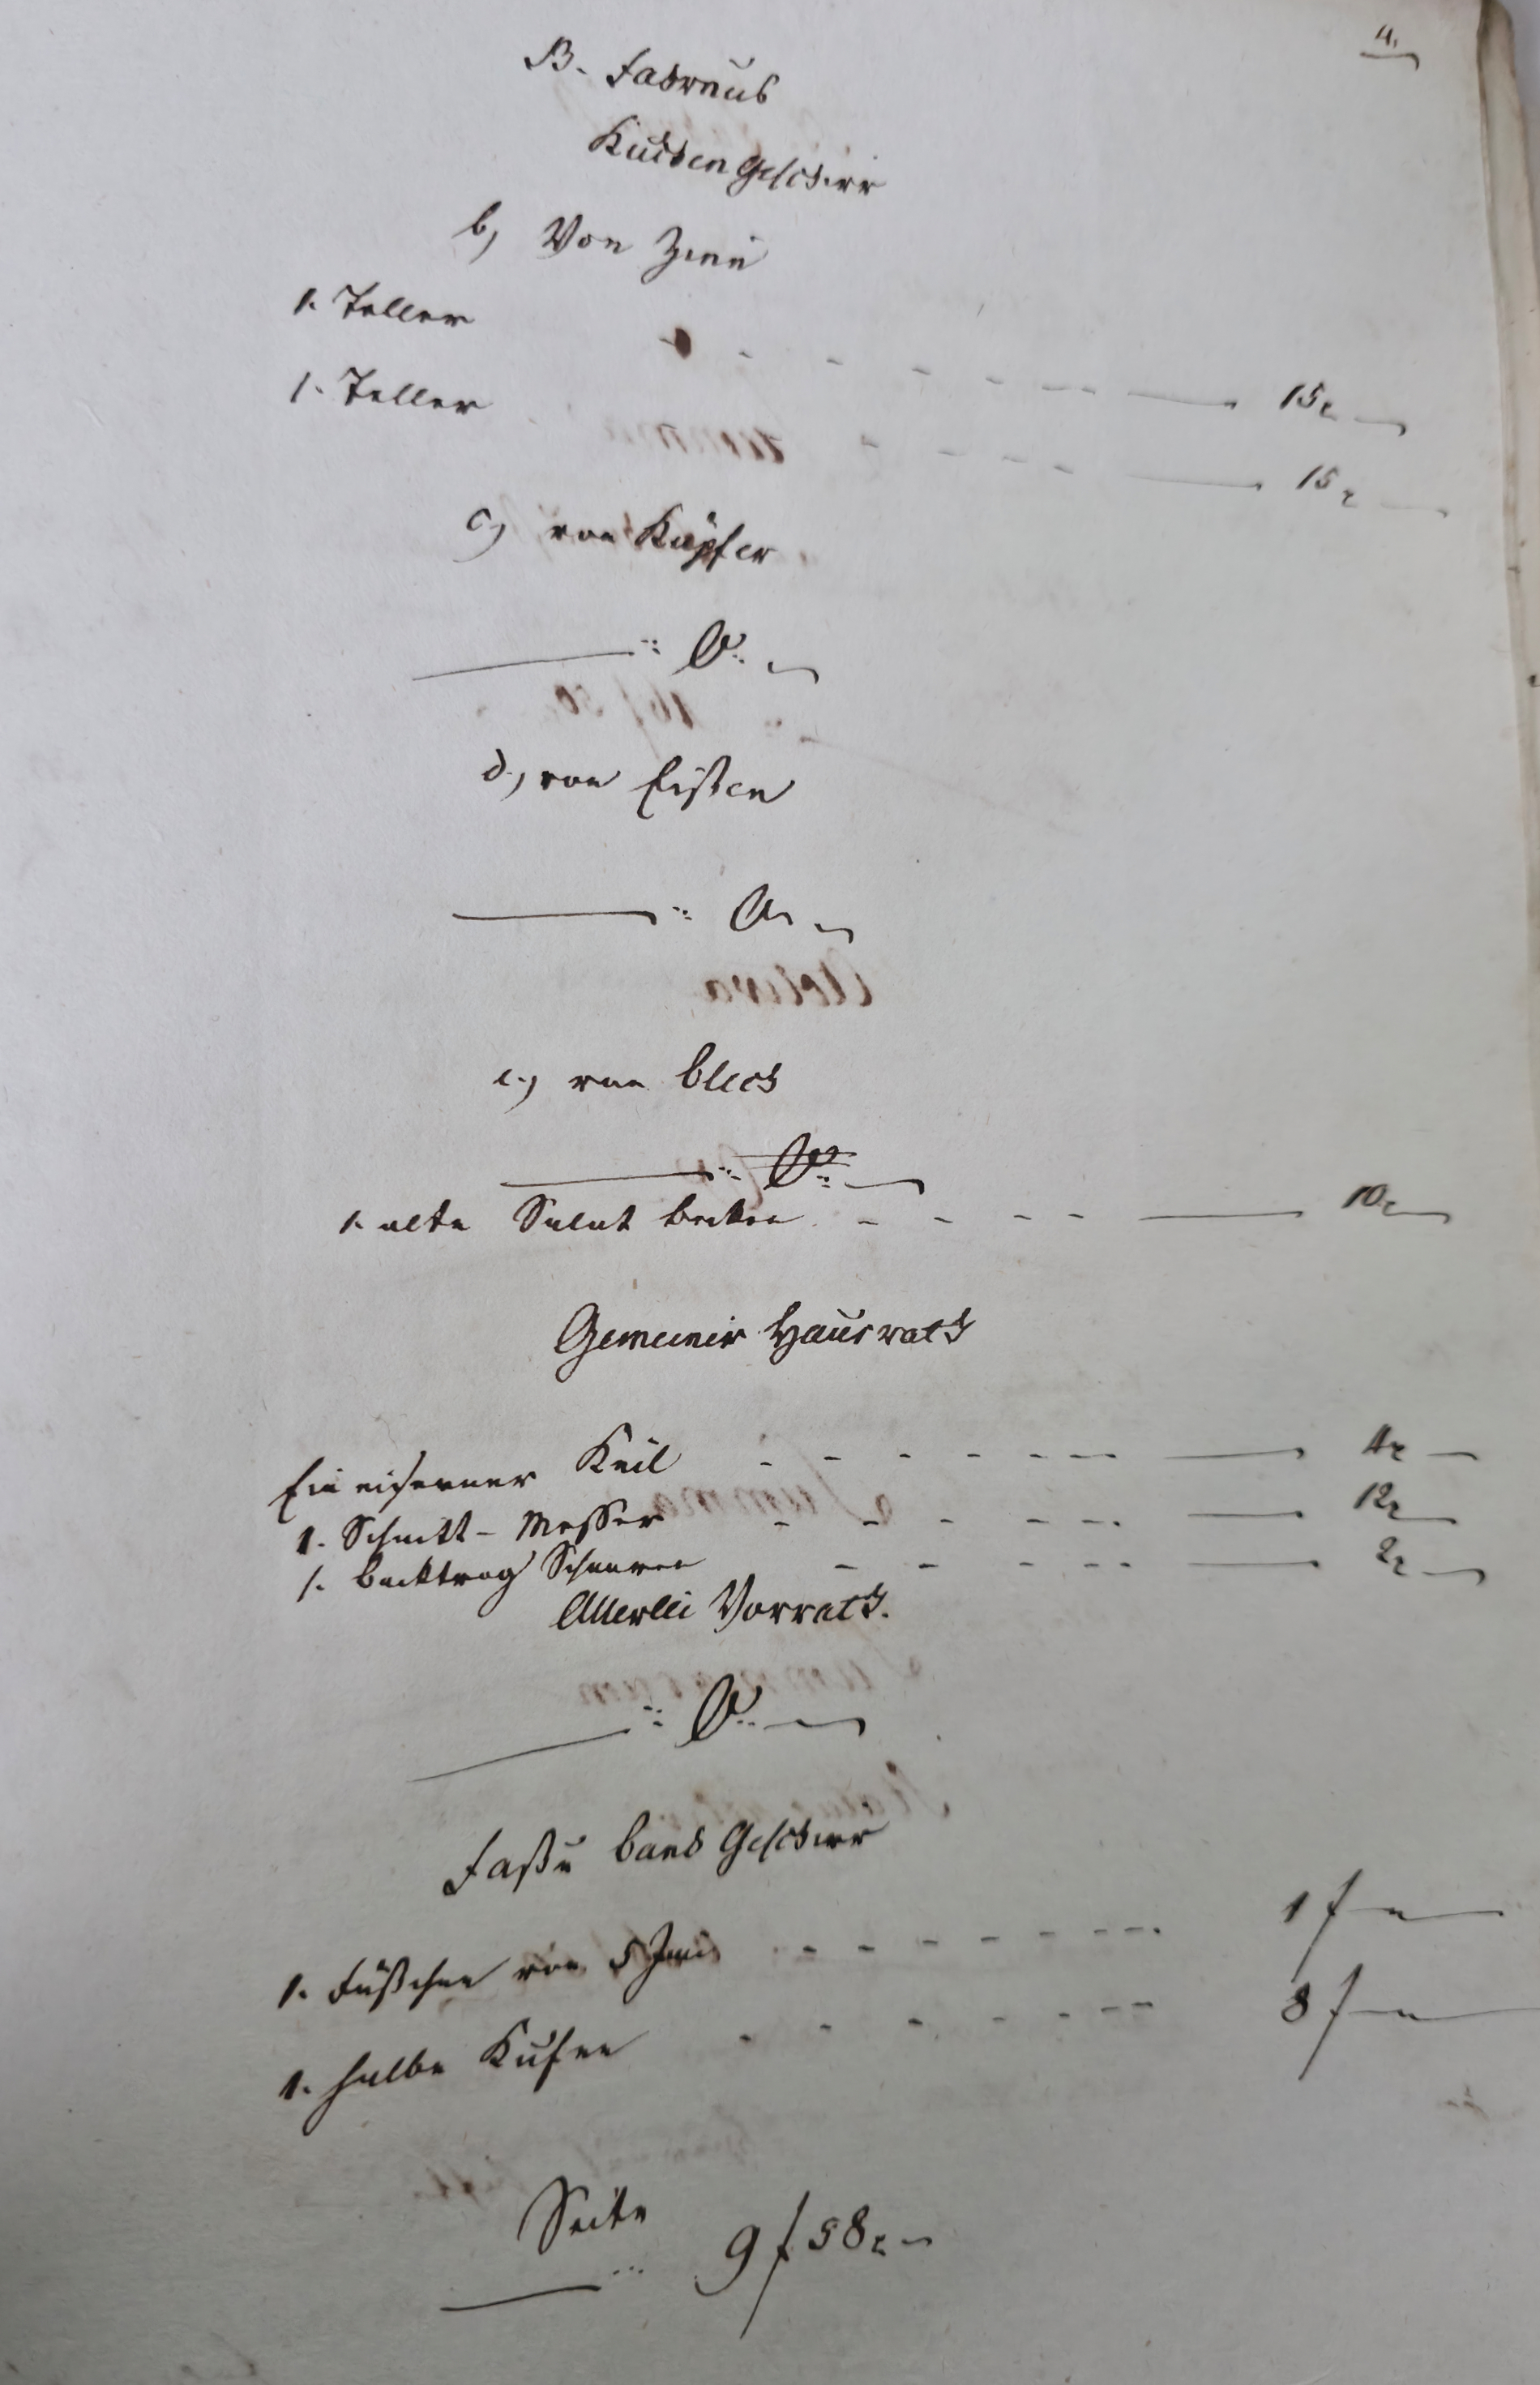 4.
B. Fahrnus
Kuchen Geschirr
b, Von Zinn
1. Teller - - - - - 15x
1. Teller - - - - - 15x
c, von Kupfer
—:: 0.
d., von Eißen
—:: 0.
e., von blech
—:: 0.
1. alte Salat becken - - - - 10x
Gemeiner Hausrath
Ein eiserner Keil - - - - - 4x
1. Schnitt-Messer - - - - - 12x
1. backtrog Schaaren - - - - 2x
Allerlei Vorrath.
—:: 0.
Faßu band Geschirr
1. Fäßchen von 5 Imi - - - - - 1 f
1. halbe Kufen - - - - - 8 f
Seite
—:: 9 f 58x